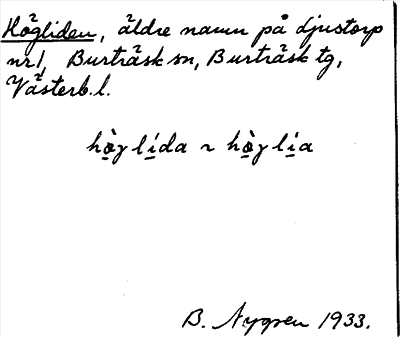 Högliden, äldre namn på Ljustorp
nr 1, Burträsk sn, Burträsk tg,
Västerb. l.
hò̱glí̱da ~ hò̱glí̱a
B. Nygren 1933.